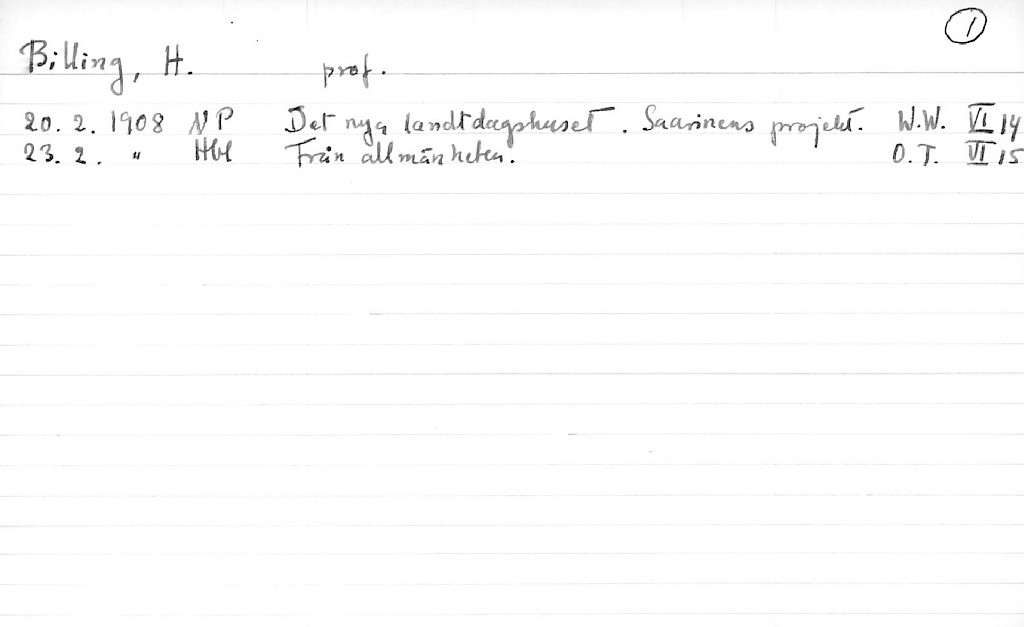 1
Billing, H. prof.
20. 2. 1908 NP Det nya landtdagshuset. Saarinens projekt. W.W. VI 14
23. 2. " Hbl Från allmänheten. O.T. VI 15